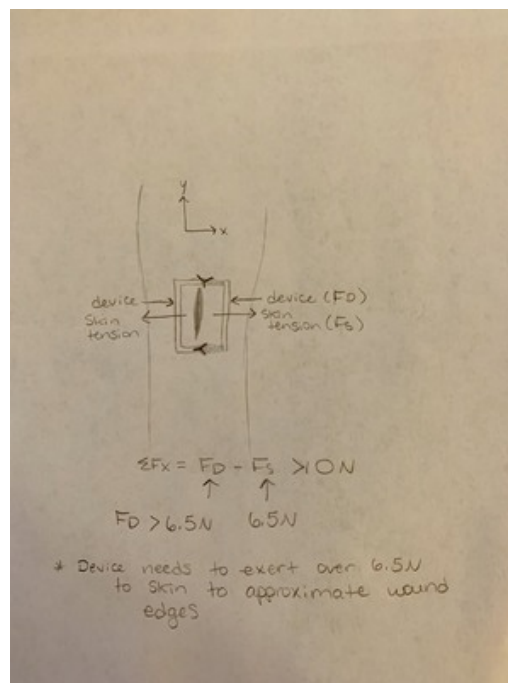 y
x
device device (FD)
skin skin
tension tension (Fs)
ΣFx = FD - Fs > 0 N
FD > 6.5N 6.5N
* Device needs to exert over 6.5N
to skin to approximate wound
edges